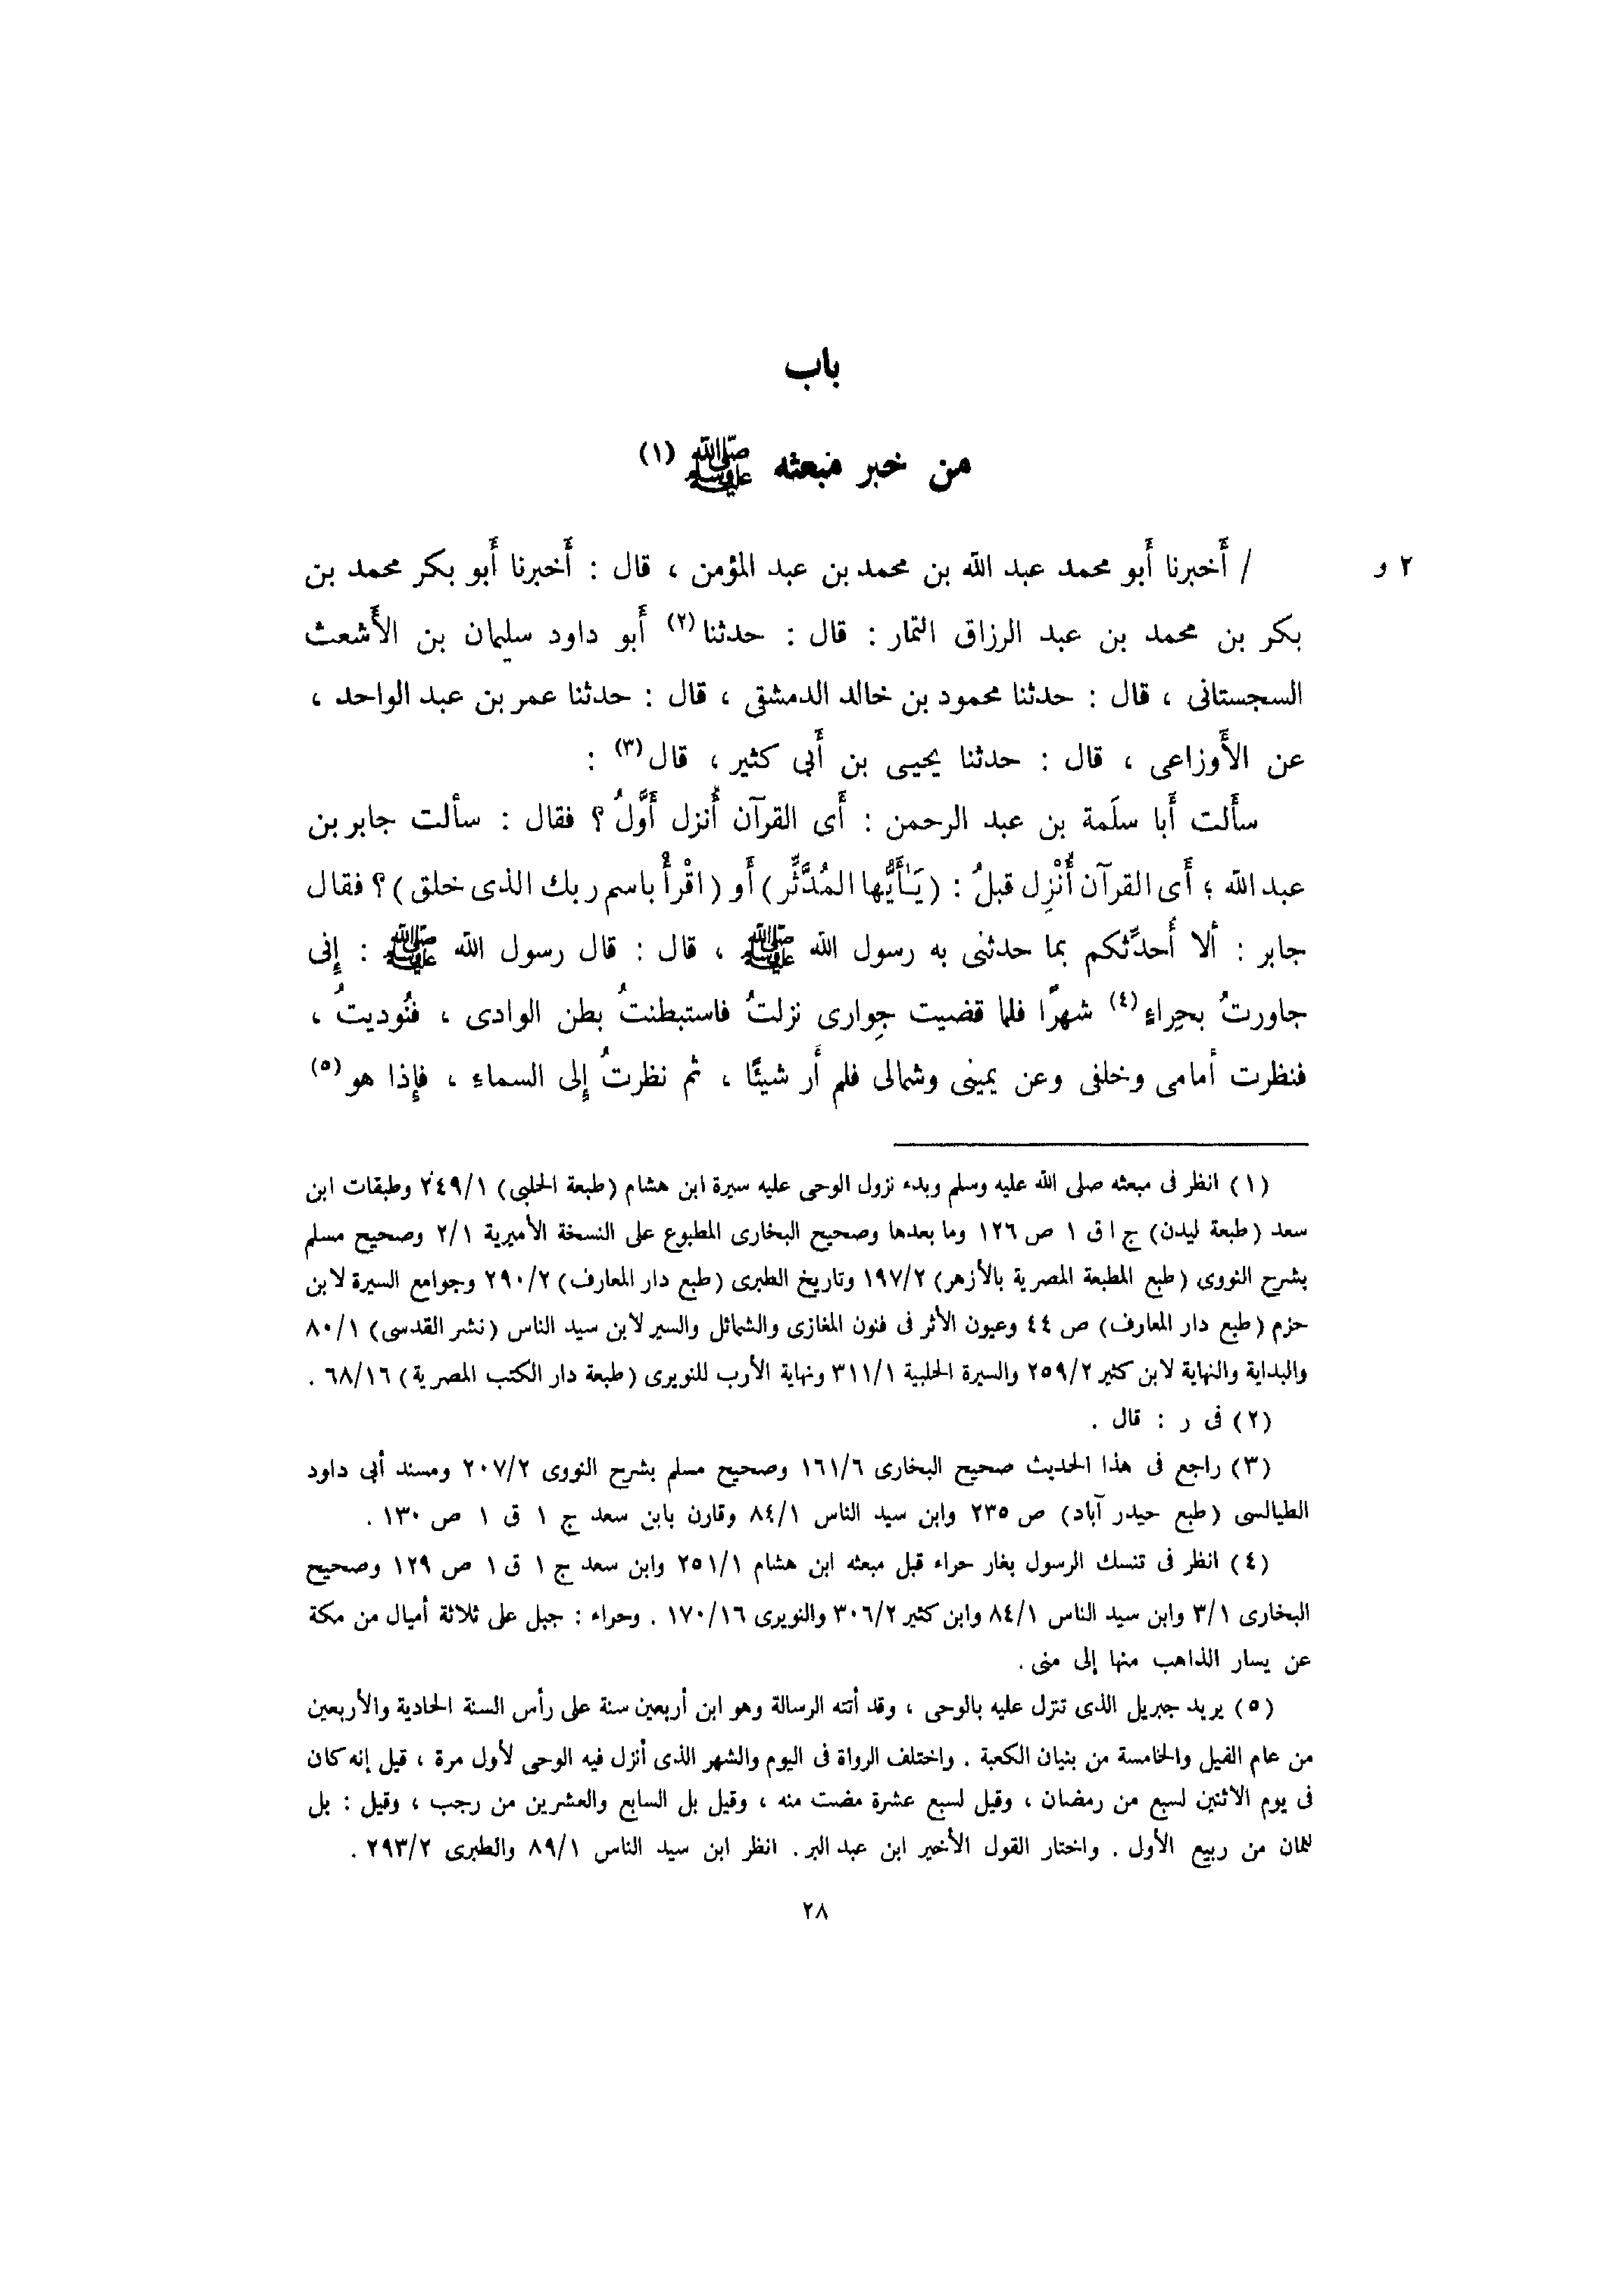 باب
من خبر مبعثه ﷺ (١)
٢ و / أَخبرنا أَبو محمد عبد الله بن محمد بن عبد المؤمن ، قال : أَخبرنا أَبو بكر محمد بن
بكر بن محمد بن عبد الرزاق التمار : قال : حدثنا (٢) أَبو داود سليمان بن الأَشعث
السجستانى ، قال : حدثنا محمود بن خالد الدمشقى ، قال : حدثنا عمر بن عبد الواحد ،
عن الأَوزاعى ، قال : حدثنا يحيى بن أَبى كثير ، قال (٣) :
سأَلت أَبا سلَمة بن عبد الرحمن : أَى القرآن أُنزل أَوَّلُ ؟ فقال : سألت جابر بن
عبد الله ؛ أَى القرآن أُنْزِل قبلُ : ( يَـٰأَيُّها المُدَّثِّر ) أَو ( اقْرأْ باسم ربك الذى خلق ) ؟ فقال
جابر : ألا أَحدِّثكم بما حدثنى به رسول الله ﷺ ، قال : قال رسول الله ﷺ : إِنى
جاورتُ بحِراءٍ (٤) شهرًا فلما قضيت جِوارى نزلتُ فاستبطنتُ بطن الوادى ، فنُوديتُ ،
فنظرت أمامى وخلفى وعن يمينى وشمالى فلم أَر شيئًا ، ثم نظرتُ إِلى السماء ، فإِذا هو (٥)
(١) انظر فى مبعثه صلى الله عليه وسلم وبدء نزول الوحى عليه سيرة ابن هشام (طبعة الحلبى) ٢٤٩/١ وطبقات ابن
سعد (طبعة ليدن) ج ١ ق ١ ص ١٢٦ وما بعدها وصحيح البخارى المطبوع على النسخة الأميرية ٢/١ وصحيح مسلم
بشرح النووى (طبع المطبعة المصرية بالأزهر) ١٩٧/٢ وتاريخ الطبرى (طبع دار المعارف) ٢٩٠/٢ وجوامع السيرة لابن
حزم (طبع دار المعارف) ص ٤٤ وعيون الأثر فى فنون المغازى والشمائل والسير لابن سيد الناس (نشر القدسى) ٨٠/١
والبداية والنهاية لابن كثير ٢٥٩/٢ والسيرة الحلبية ٣١١/١ ونهاية الأرب للنويرى (طبعة دار الكتب المصرية) ٦٨/١٦ .
(٢) فى ر : قال .
(٣) راجع فى هذا الحديث صحيح البخارى ١٦١/٦ وصحيح مسلم بشرح النووى ٢٠٧/٢ ومسند أبى داود
الطيالسى (طبع حيدر آباد) ص ٢٣٥ وابن سيد الناس ٨٤/١ وقارن بابن سعد ج ١ ق ١ ص ١٣٠ .
(٤) انظر فى تنسك الرسول بغار حراء قبل مبعثه ابن هشام ٢٥١/١ وابن سعد ج ١ ق ١ ص ١٢٩ وصحيح
البخارى ٣/١ وابن سيد الناس ٨٤/١ وابن كثير ٣٠٦/٢ والنويرى ١٧٠/١٦ . وحراء : جبل على ثلاثة أميال من مكة
عن يسار الذاهب منها إلى منى .
(٥) يريد جبريل الذى تنزل عليه بالوحى ، وقد أتته الرسالة وهو ابن أربعين سنة على رأس السنة الحادية والأربعين
من عام الفيل والخامسة من بنيان الكعبة . واختلف الرواة فى اليوم والشهر الذى أنزل فيه الوحى لأول مرة ، قيل إنه كان
فى يوم الاثنين لسبع من رمضان ، وقيل لسبع عشرة مضت منه ، وقيل بل السابع والعشرين من رجب ، وقيل : بل
لثمان من ربيع الأول . واختار القول الأخير ابن عبد البر . انظر ابن سيد الناس ٨٩/١ والطبرى ٢٩٣/٢ .
٢٨